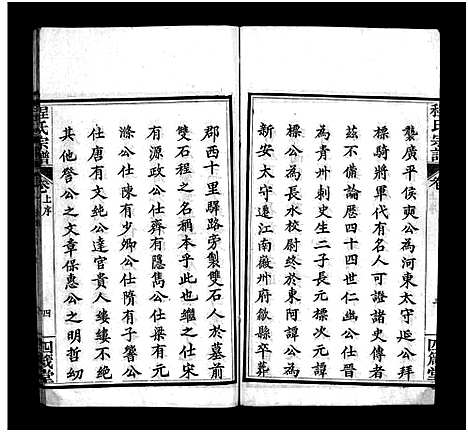 襲廣平侯奭公為河東太守延公拜
標騎將軍代有名人可證諸史傳者
茲不備論歷四十四世仁公仕晉
為青州刺史生二子長元標次元
標公為長水校尉終於東阿譚公
新安太守遷江南徽州府歙縣卒葬
程氏宗譜
卷
四箴堂
郡西十里驛路旁製雙石人於墓前
雙石程之名稱本乎此也繼之仕宋
有源政公仕魏有隱雋公仕梁有元
滌公仕陳有少卿公仕隋有子響公
仕唐有文純公達官貴人縷縷不絕
其他譽公之文章保惠公之明哲幼
程氏宗譜
卷上序
四
四箴堂